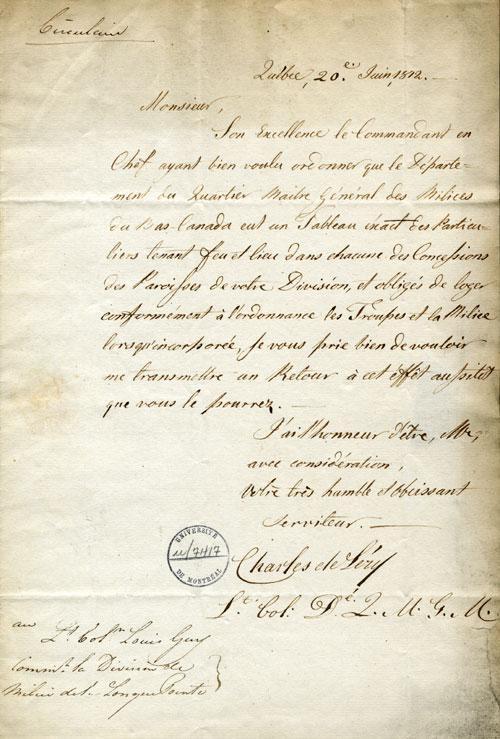 Circulaire
Québec, 20e. Juin, 1812. —
Monsieur,
Son Excellence le Commandant en
Chef ayant bien voulu ordonner que le Départe-
ment du Quartier Maitre Général des Milices
du Bas-Canada eut un Tableau exact des Particu-
liers tenant feu et lieu dans chacune des Concessions
des Paroisses de votre Division, et obligés de loger
conformément à l'ordonnance les Troupes et la Milice
lorsqu'incorporée, je vous prie bien de vouloir
me transmettre un Retour à cet effêt aussitot
que vous le pourrez. —
J'ai l'honneur d'être, Mr,
avec considération,
Votre très humble et Obéissant
Serviteur. —
UNIVERSITÉ
u/7417
DE MONTRÉAL
Charles de Léry
Lt. Col: Dé. Q. M. G. M.
au Lt. Colnl Louis Guy
Commt. la Division de
Milice de L. Longue Pointe